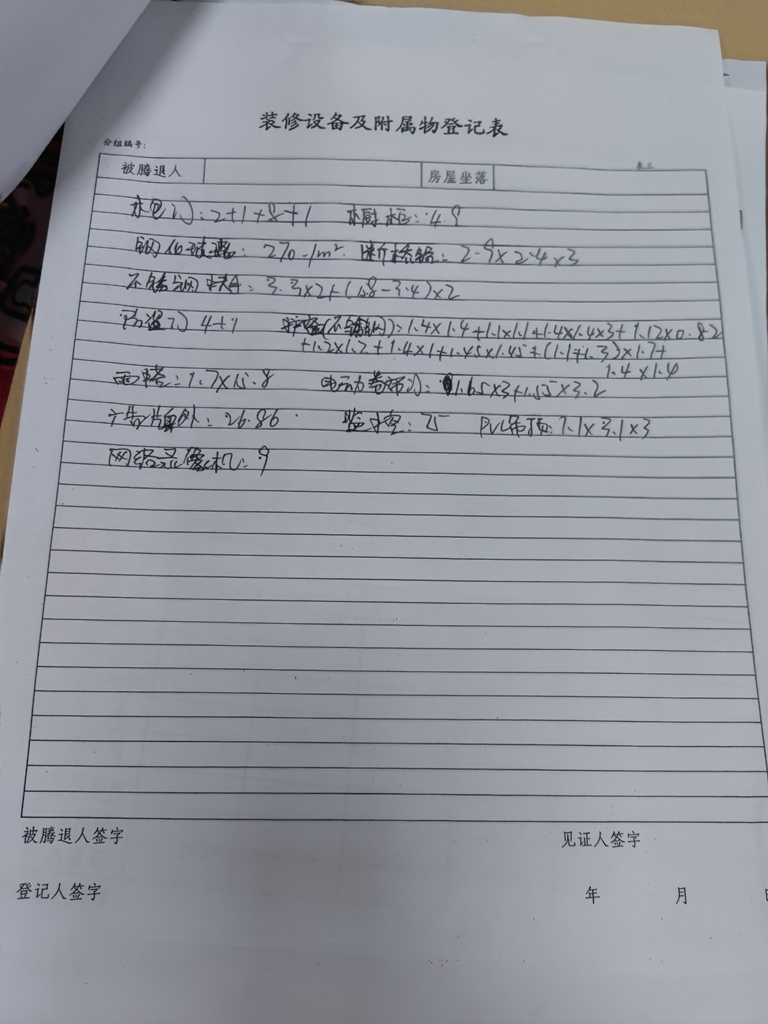 装修设备及附属物登记表
分组编号: 表三
被腾退人 房屋坐落
木包门:2+1+8+1 橱柜:4.9
钢化玻璃: 270-/m² 断桥铝:2.9×2.4×3
不锈钢扶手:3.3×2+(6.8-3.4)×2
防盗门 4+1 护窗(不锈钢):1.4×1.4+1.1×1.1+1.4×1.4×3+1.12×0.82
+1.2×1.2+1.4×1+1.45×1.45+(1.1+1.3)×1.7+
1.4×1.4
雨搭:1.7×15.8 电动卷帘门:1.65×3+1.55×3.2
广告牌室外:26.86 监控:25 PVC吊顶:7.1×3.1×3
网络录像机:9
被腾退人签字 见证人签字
登记人签字 年 月